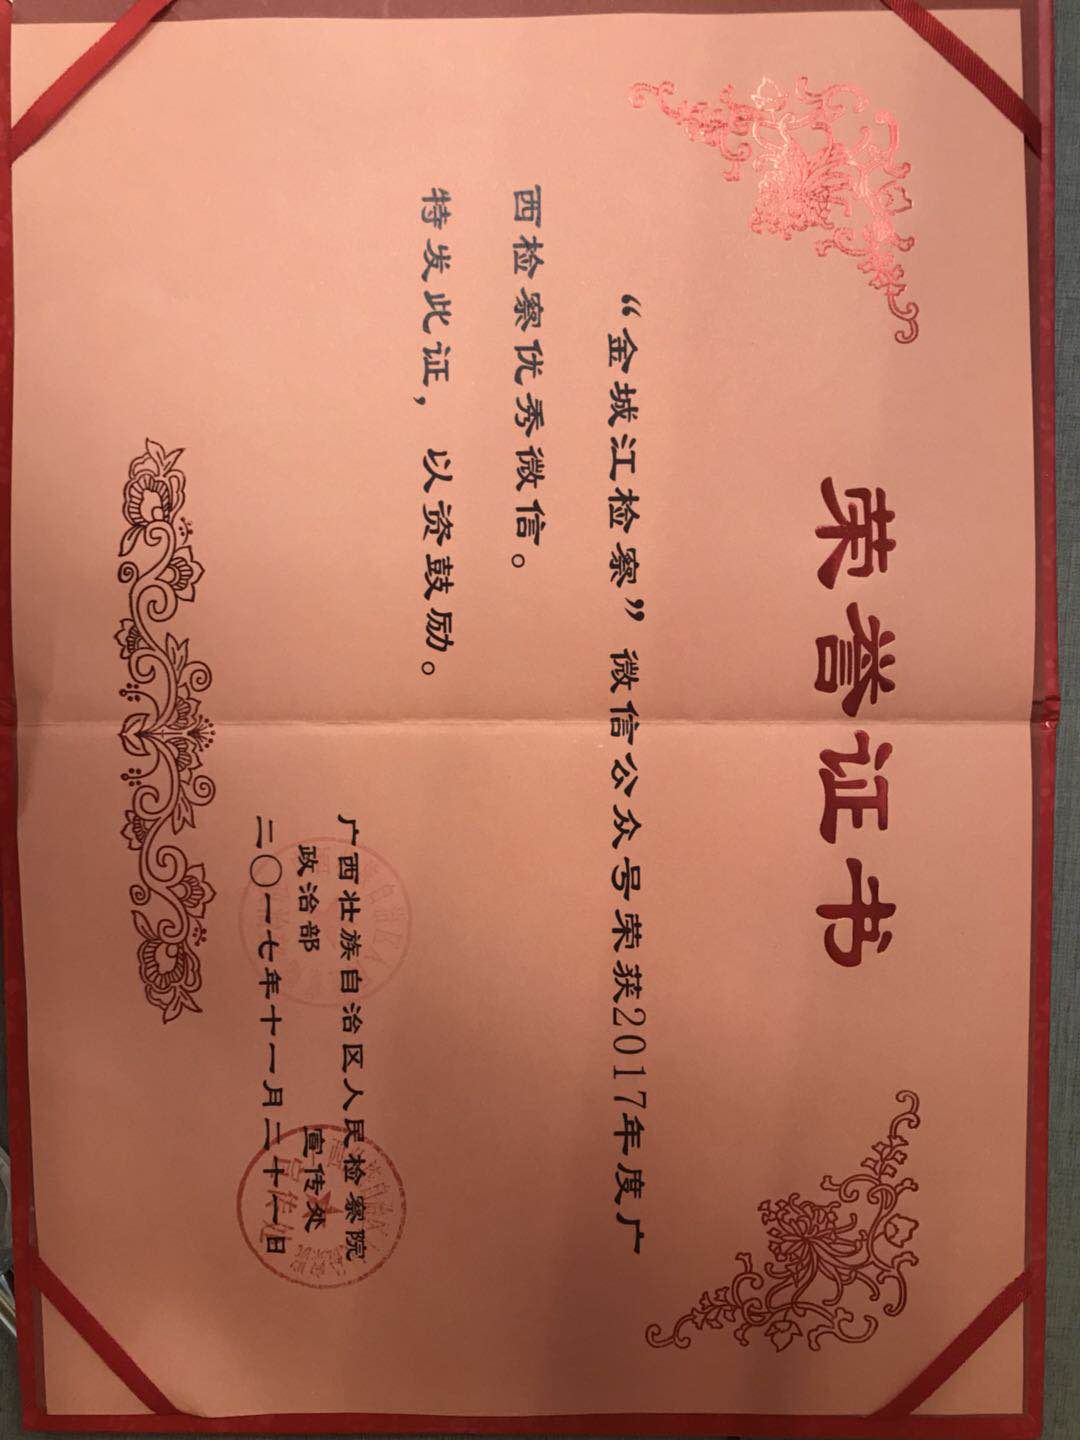 荣誉证书
“金城江检察”微信公众号荣获2017年度广
西检察优秀微信。
特发此证，以资鼓励。
广西壮族自治区人民检察院
政治部 宣传处
二〇一七年十一月二十一日
宣传处